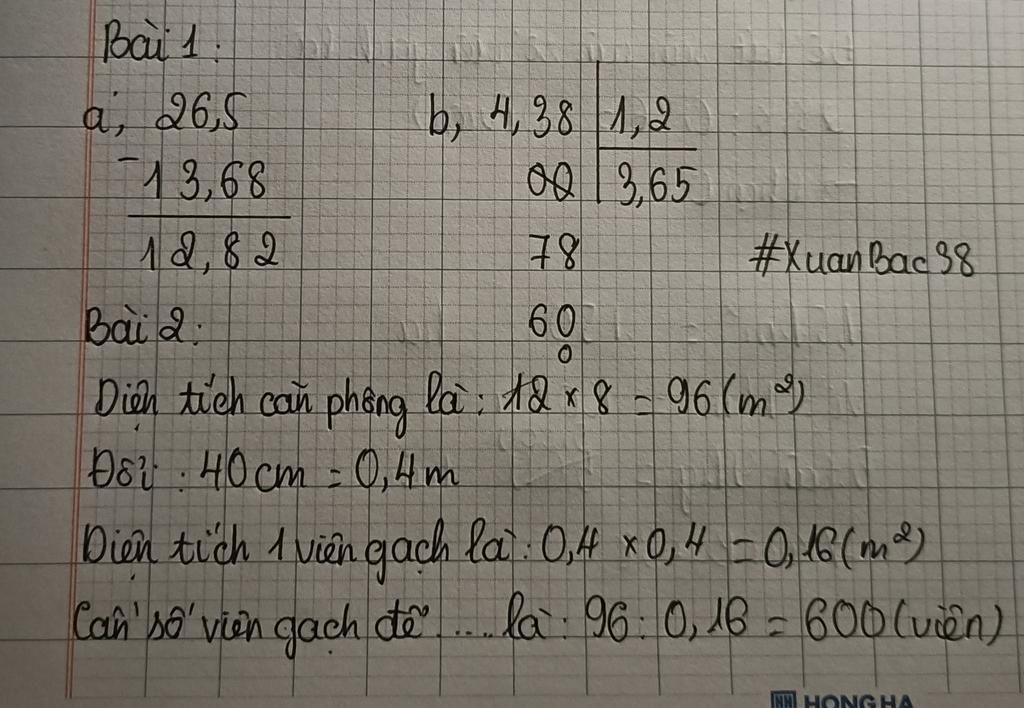 Bài 1:
a, 26,5 b, 4,38 1,2
- 13,68 00 3,65
12,82 78 #XuanBac98
Bài 2: 60
0
Diện tích căn phòng là: 12 x 8 = 96 (m²)
Đổi: 40 cm = 0,4 m
Diện tích 1 viên gạch là: 0,4 x 0,4 = 0,16 (m²)
Cần số viên gạch để .... là: 96 : 0,16 = 600 (viên)
HONG HA